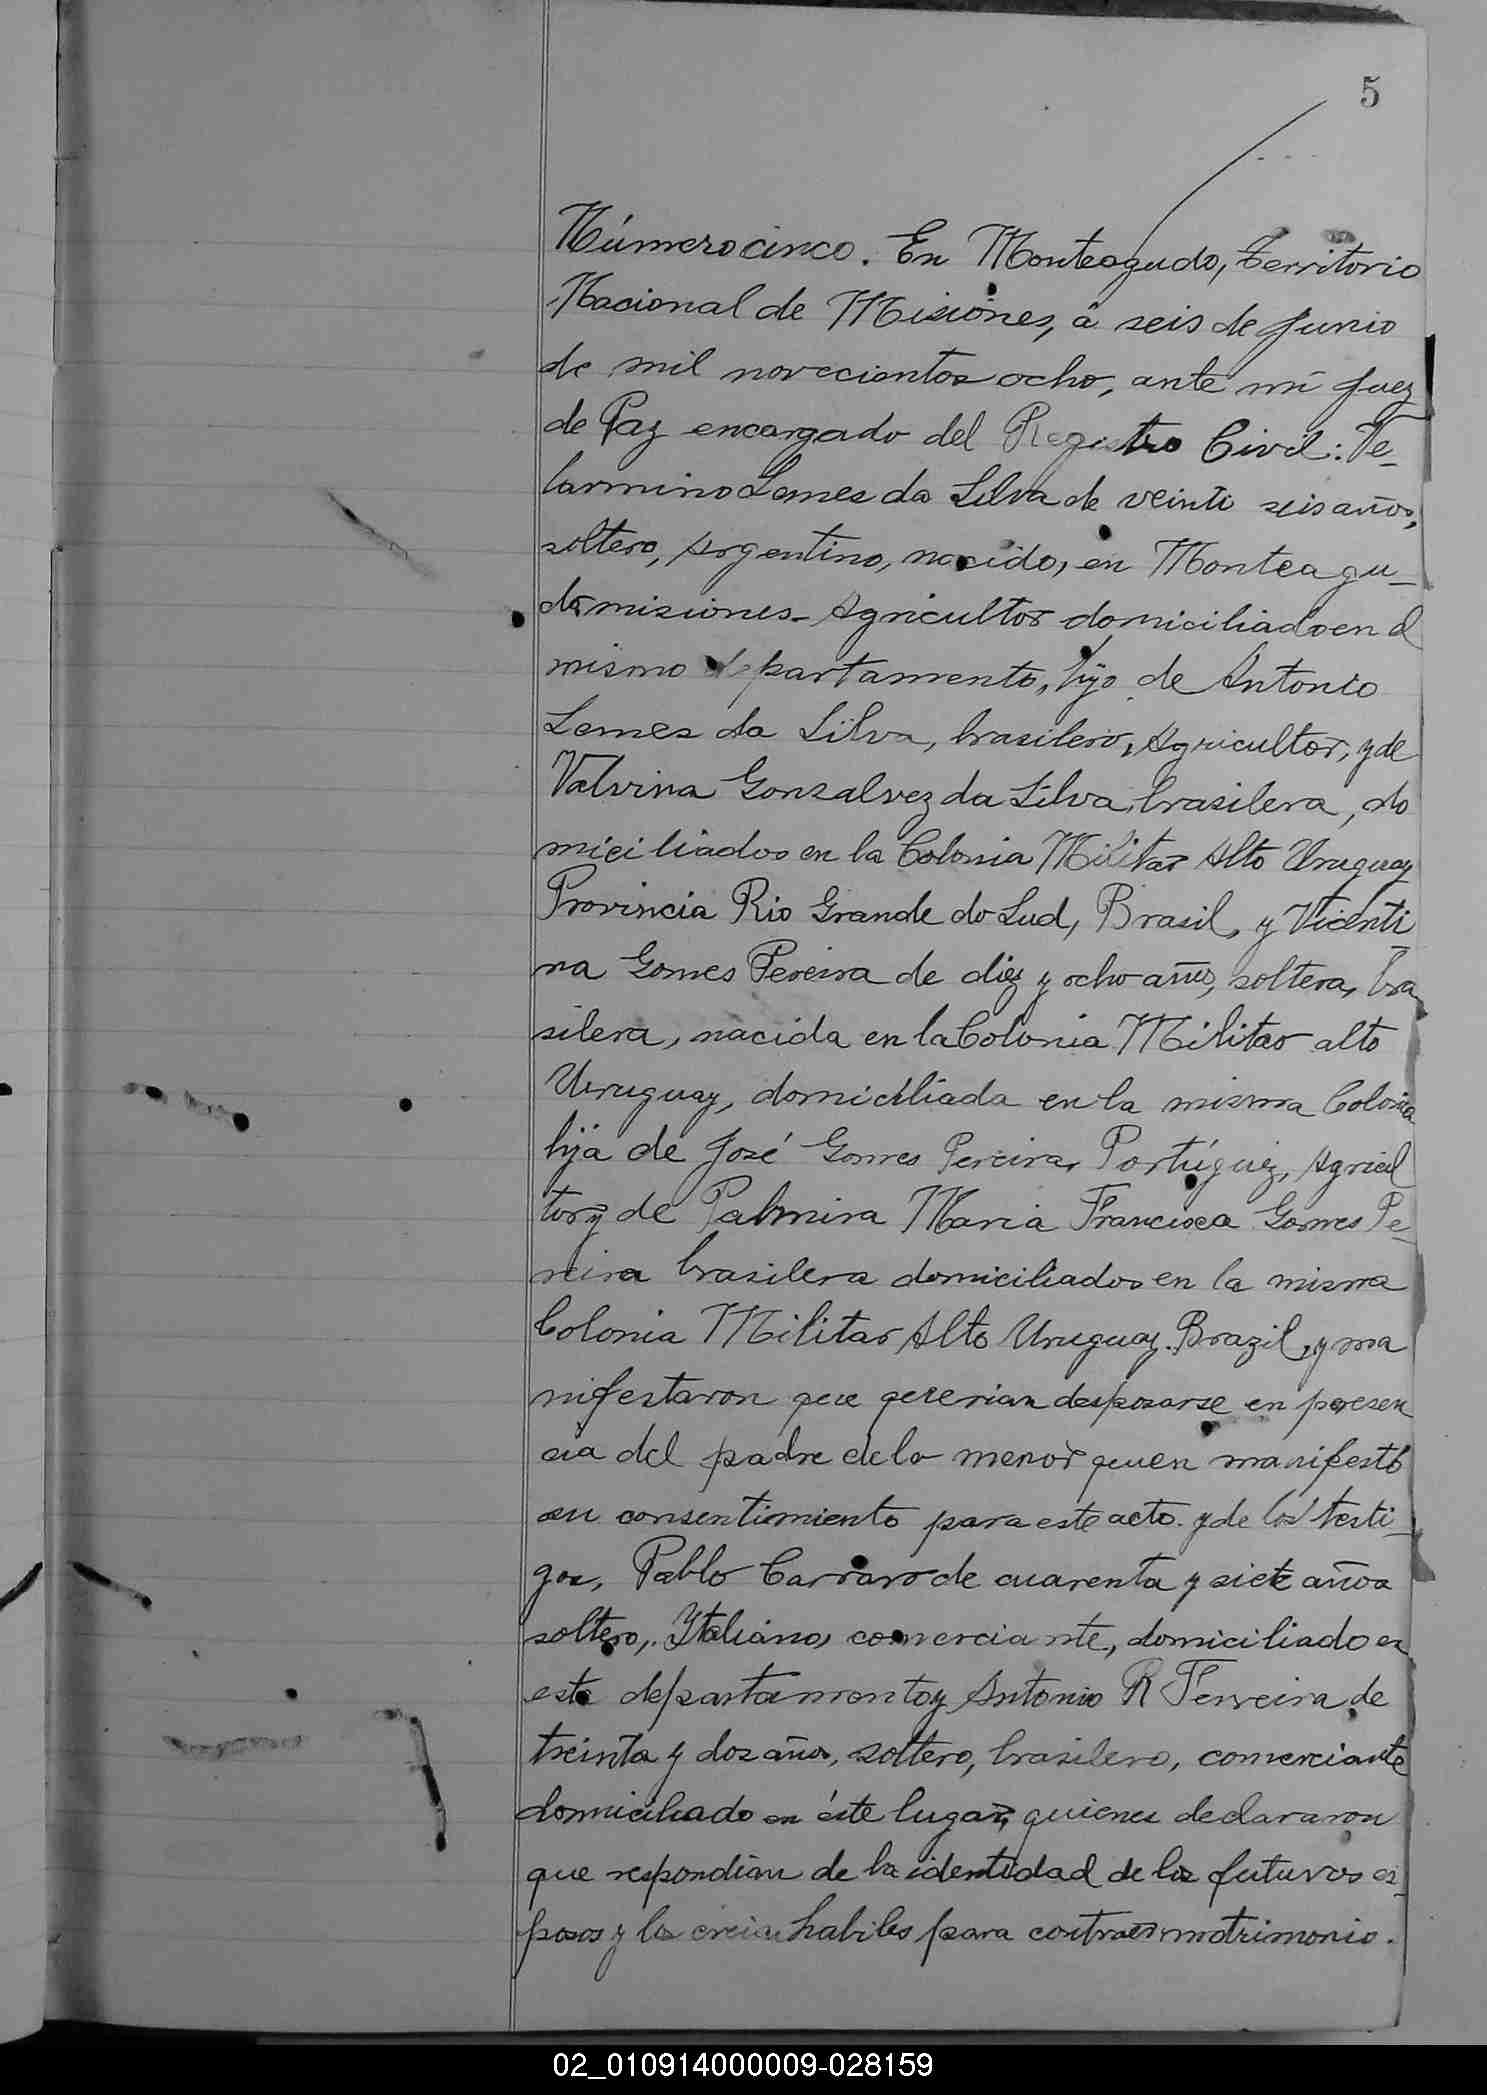 5
Número cinco. En Monteagudo, Territorio
Nacional de Misiones, á seis de Junio
de mil novecientos ocho, ante mi Juez
de Paz encargado del Registro Civil: Be-
larmino Lemes da Silva de veinti seis años,
soltero, Argentino, nacido, en Monteagu-
do misiones- Agricultor domiciliado en el
mismo departamento, hijo de Antonio
Lemes da Silva, brasilero, Agricultor, y de
Valvina Gonsalvez da Silva, brasilera, do
miciliados en la Colonia Militar Alto Uruguay
Provincia Rio Grande do Sud, Brasil, y Vicenti
na Gomes Pereira de diez y ocho años, soltera, bra
silera, nacida en la Colonia Militar alto
Uruguay, domiciliada en la misma Colonia
hija de José Gomes Pereira, Portúguez, Agricul
tor y de Palmira Maria Francisca Gomes Pe-
reira brasilera domiciliados en la misma
Colonia Militar Alto Uruguay. Brazil, y ma
nifestaron que querian desposarse en presen
cia del padre de la menor quien manifestó
su consentimiento para este acto. y de los testi-
gos, Pablo Carraro de cuarenta y siete años
soltero, Italiano, comerciante, domiciliado en
este departamento y Antonio R Ferreira, de
treinta y dos años, soltero, brasilero, comerciante
domiciliado en éste lugar, quienes declararon
que respondian de la identidad de los futuros es-
posos y los creian habiles para contraer matrimonio.
02_010914000009-028159